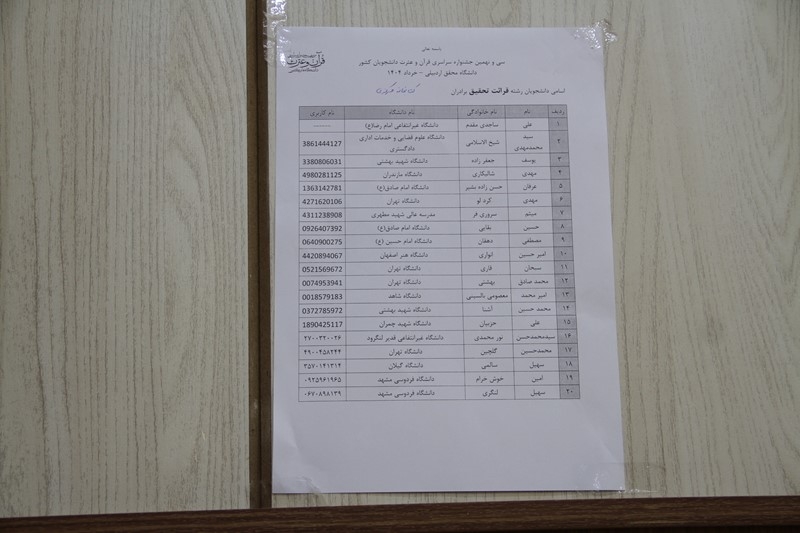 باسمه تعالی
سی و نهمین جشنواره سراسری قرآن و عترت دانشجویان کشور
دانشگاه محقق اردبیلی - خرداد ۱۴۰۴
قرآن و عترت
اسامی دانشجویان رشته قرائت تحقیق برادران
ردیف نام نام خانوادگی نام دانشگاه نام کاربری
۱ علی ساجدی مقدم دانشگاه غیرانتفاعی امام رضا(ع) ---------
۲ سید محمدمهدی شیخ الاسلامی دانشگاه علوم قضایی و خدمات اداری دادگستری 3861444127
۳ یوسف جعفر زاده دانشگاه شهید بهشتی 3380806031
۴ مهدی شالیکاری دانشگاه مازندران 4980281125
۵ عرفان حسن زاده بشیر دانشگاه امام صادق(ع) 1363142781
۶ مهدی کرد لو دانشگاه تهران 4271620106
۷ میثم سروری فر مدرسه عالی شهید مطهری 4311238908
۸ حسین بقایی دانشگاه امام صادق(ع) 0926407392
۹ مصطفی دهقان دانشگاه امام حسین (ع) 0640900275
۱۰ امیر حسین انواری دانشگاه هنر اصفهان 4420894067
۱۱ سبحان قاری دانشگاه تهران 0521569672
۱۲ محمد صادق بهشتی دانشگاه تهران 0074953941
۱۳ امیر محمد معصومی بالسینی دانشگاه شاهد 0018579183
۱۴ محمد حسین آشنا دانشگاه شهید بهشتی 0372785972
۱۵ علی حزبیان دانشگاه شهید چمران 1890425117
۱۶ سیدمحمدحسن نور محمدی دانشگاه غیرانتفاعی قدیر لنگرود ۲۷۰۰۳۲۰۰۲۶
۱۷ محمدحسین گلچین دانشگاه تهران ۴۹۰۰۴۵۸۲۴۴
۱۸ سهیل سالمی دانشگاه گیلان ۲۵۷۰۱۴۱۳۱۴
۱۹ امین خوش خرام دانشگاه فردوسی مشهد ۰۹۲۵۹۶۱۹۶۵
۲۰ سهیل لنگری دانشگاه فردوسی مشهد ۰۶۷۰۸۹۸۱۳۹